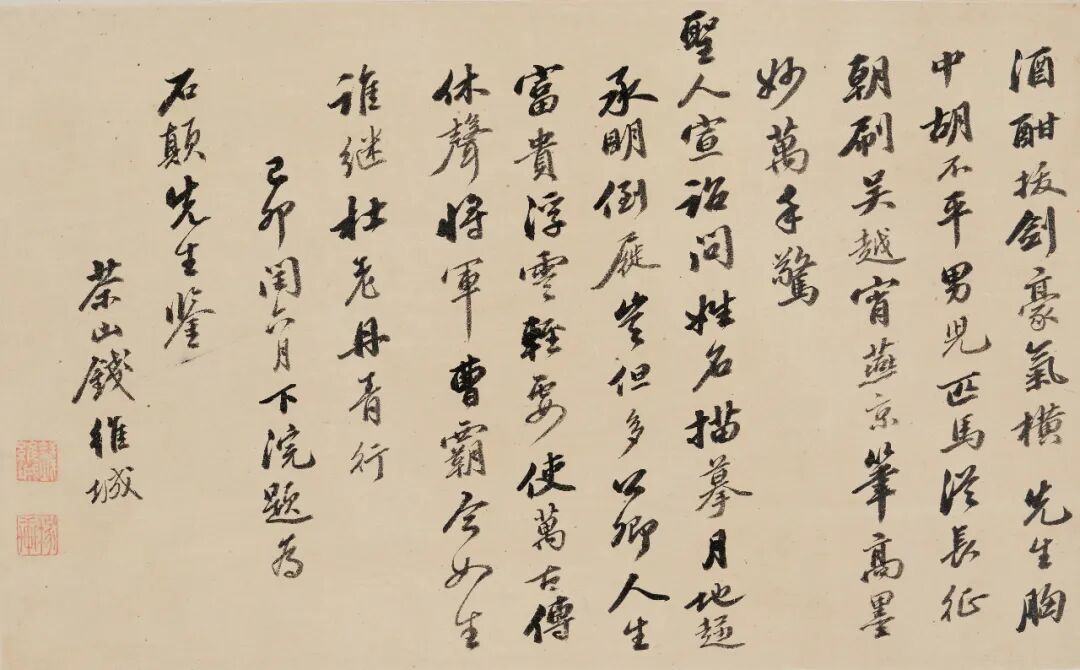 酒酣拔劍豪氣橫先生胸
中胡不平男兒匹馬從長征
朝刷吳越宵燕京筆高墨
妙萬手驚
聖人宣詔問姓名描摹月地趨
承明倒屣豈但多公卿人生
富貴浮雲輕要使萬古傳
休聲將軍曹霸今如生
誰繼杜老丹青行
己卯閏六月下浣題為
石顛先生鑒
茶山錢維城